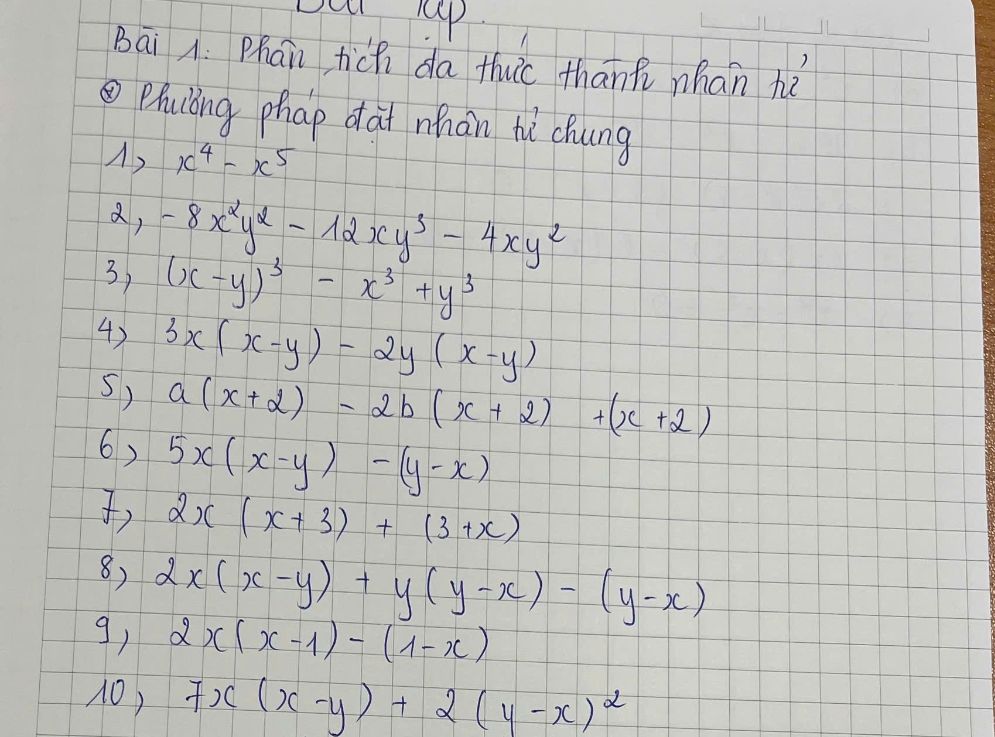 Bài tập.
Bài 1: Phân tích đa thức thành nhân tử
⊛ Phương pháp đặt nhân tử chung
1, x⁴ - x⁵
2, -8x²y² - 12xy³ - 4xy²
3, (x-y)³ - x³ + y³
4, 3x(x-y) - 2y(x-y)
5, a(x+2) - 2b(x+2) + (x+2)
6, 5x(x-y) - (y-x)
7, 2x(x+3) + (3+x)
8, 2x(x-y) + y(y-x) - (y-x)
9, 2x(x-1) - (1-x)
10, 7x(x-y) + 2(y-x)²